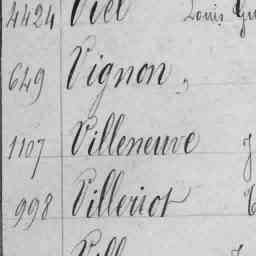 4424 Viel Louis
649 Vignon,
1107 Villeneuve J
998 Villeriot
Vill